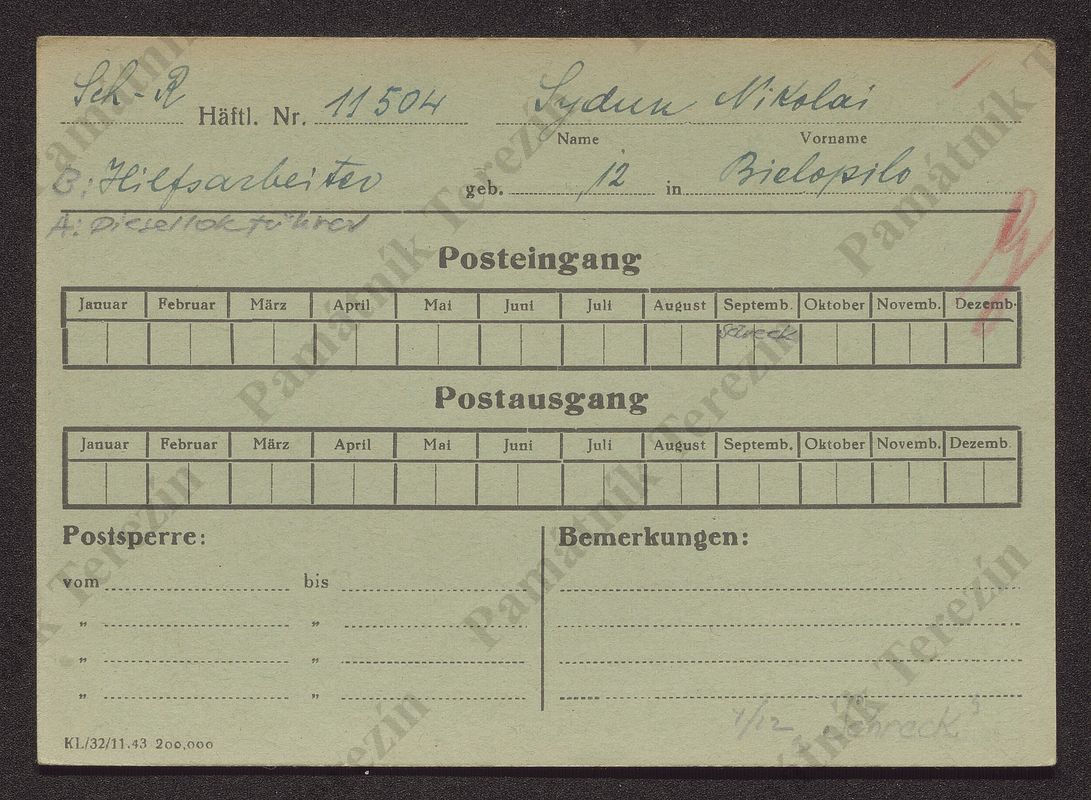 Sch-R Häftl. Nr. 11504 Sydun Nikolai
Name Vorname
B: Hilfsarbeiter geb. 12 in Bielopilo
A: Diesellokführer
Posteingang
Januar Februar März April Mai Juni Juli August Septemb. Oktober Novemb. Dezemb.
Schreck
Postausgang
Januar Februar März April Mai Juni Juli August Septemb. Oktober Novemb. Dezemb.
Postsperre: Bemerkungen:
vom bis
" "
" "
" "
1/12 Schreck
KL/32/11.43 200,000
Památník Terezín